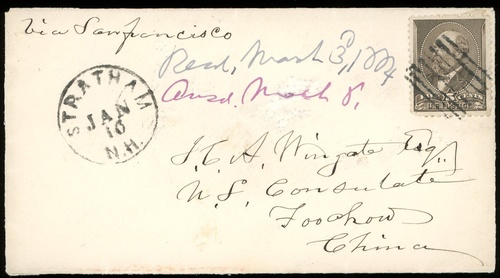 Via Sanfrancisco
Recd, March 3d, 1884
Ansd. March 8,
STRATHAM
JAN
10
N.H.
J. C. A. Wingate Esq
U. S. Consulate
Foochow
China